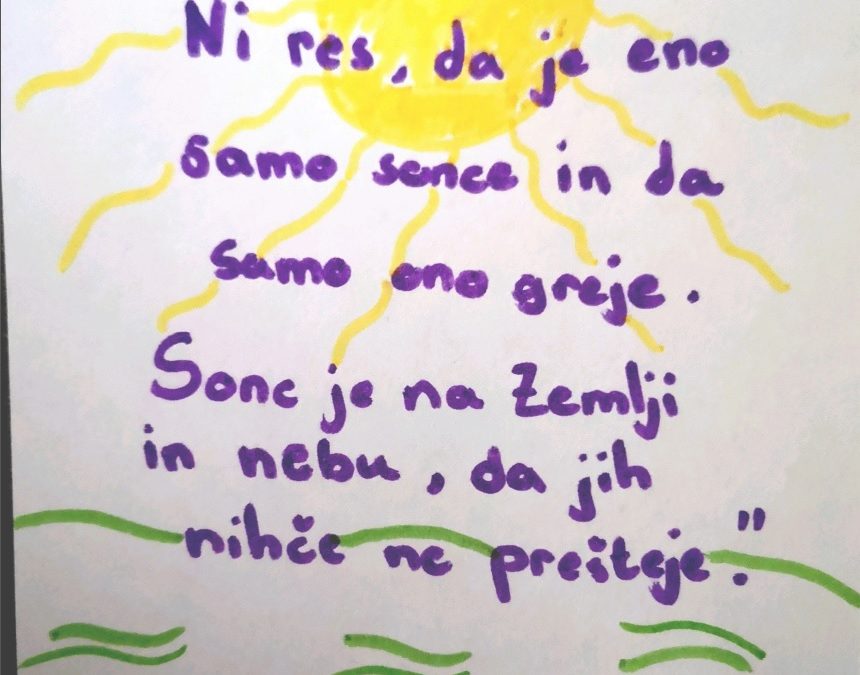 Ni res, da je eno
samo sonce in da
samo ono greje.
Sonc je na Zemlji
in nebu, da jih
nihče ne prešteje."